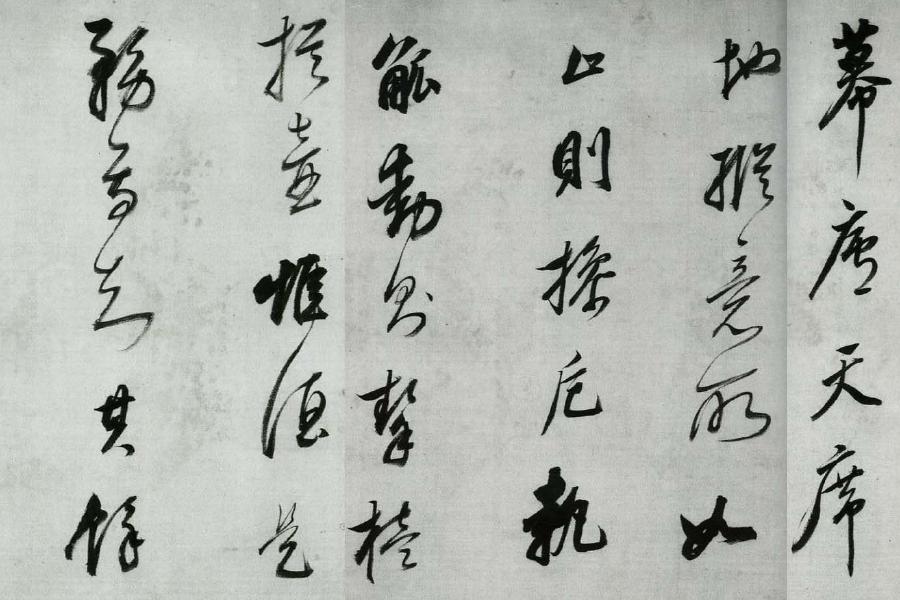 幕天席
地縱意所如
止則操卮執
觚動則挈榼
提壺惟酒是
務焉知其餘